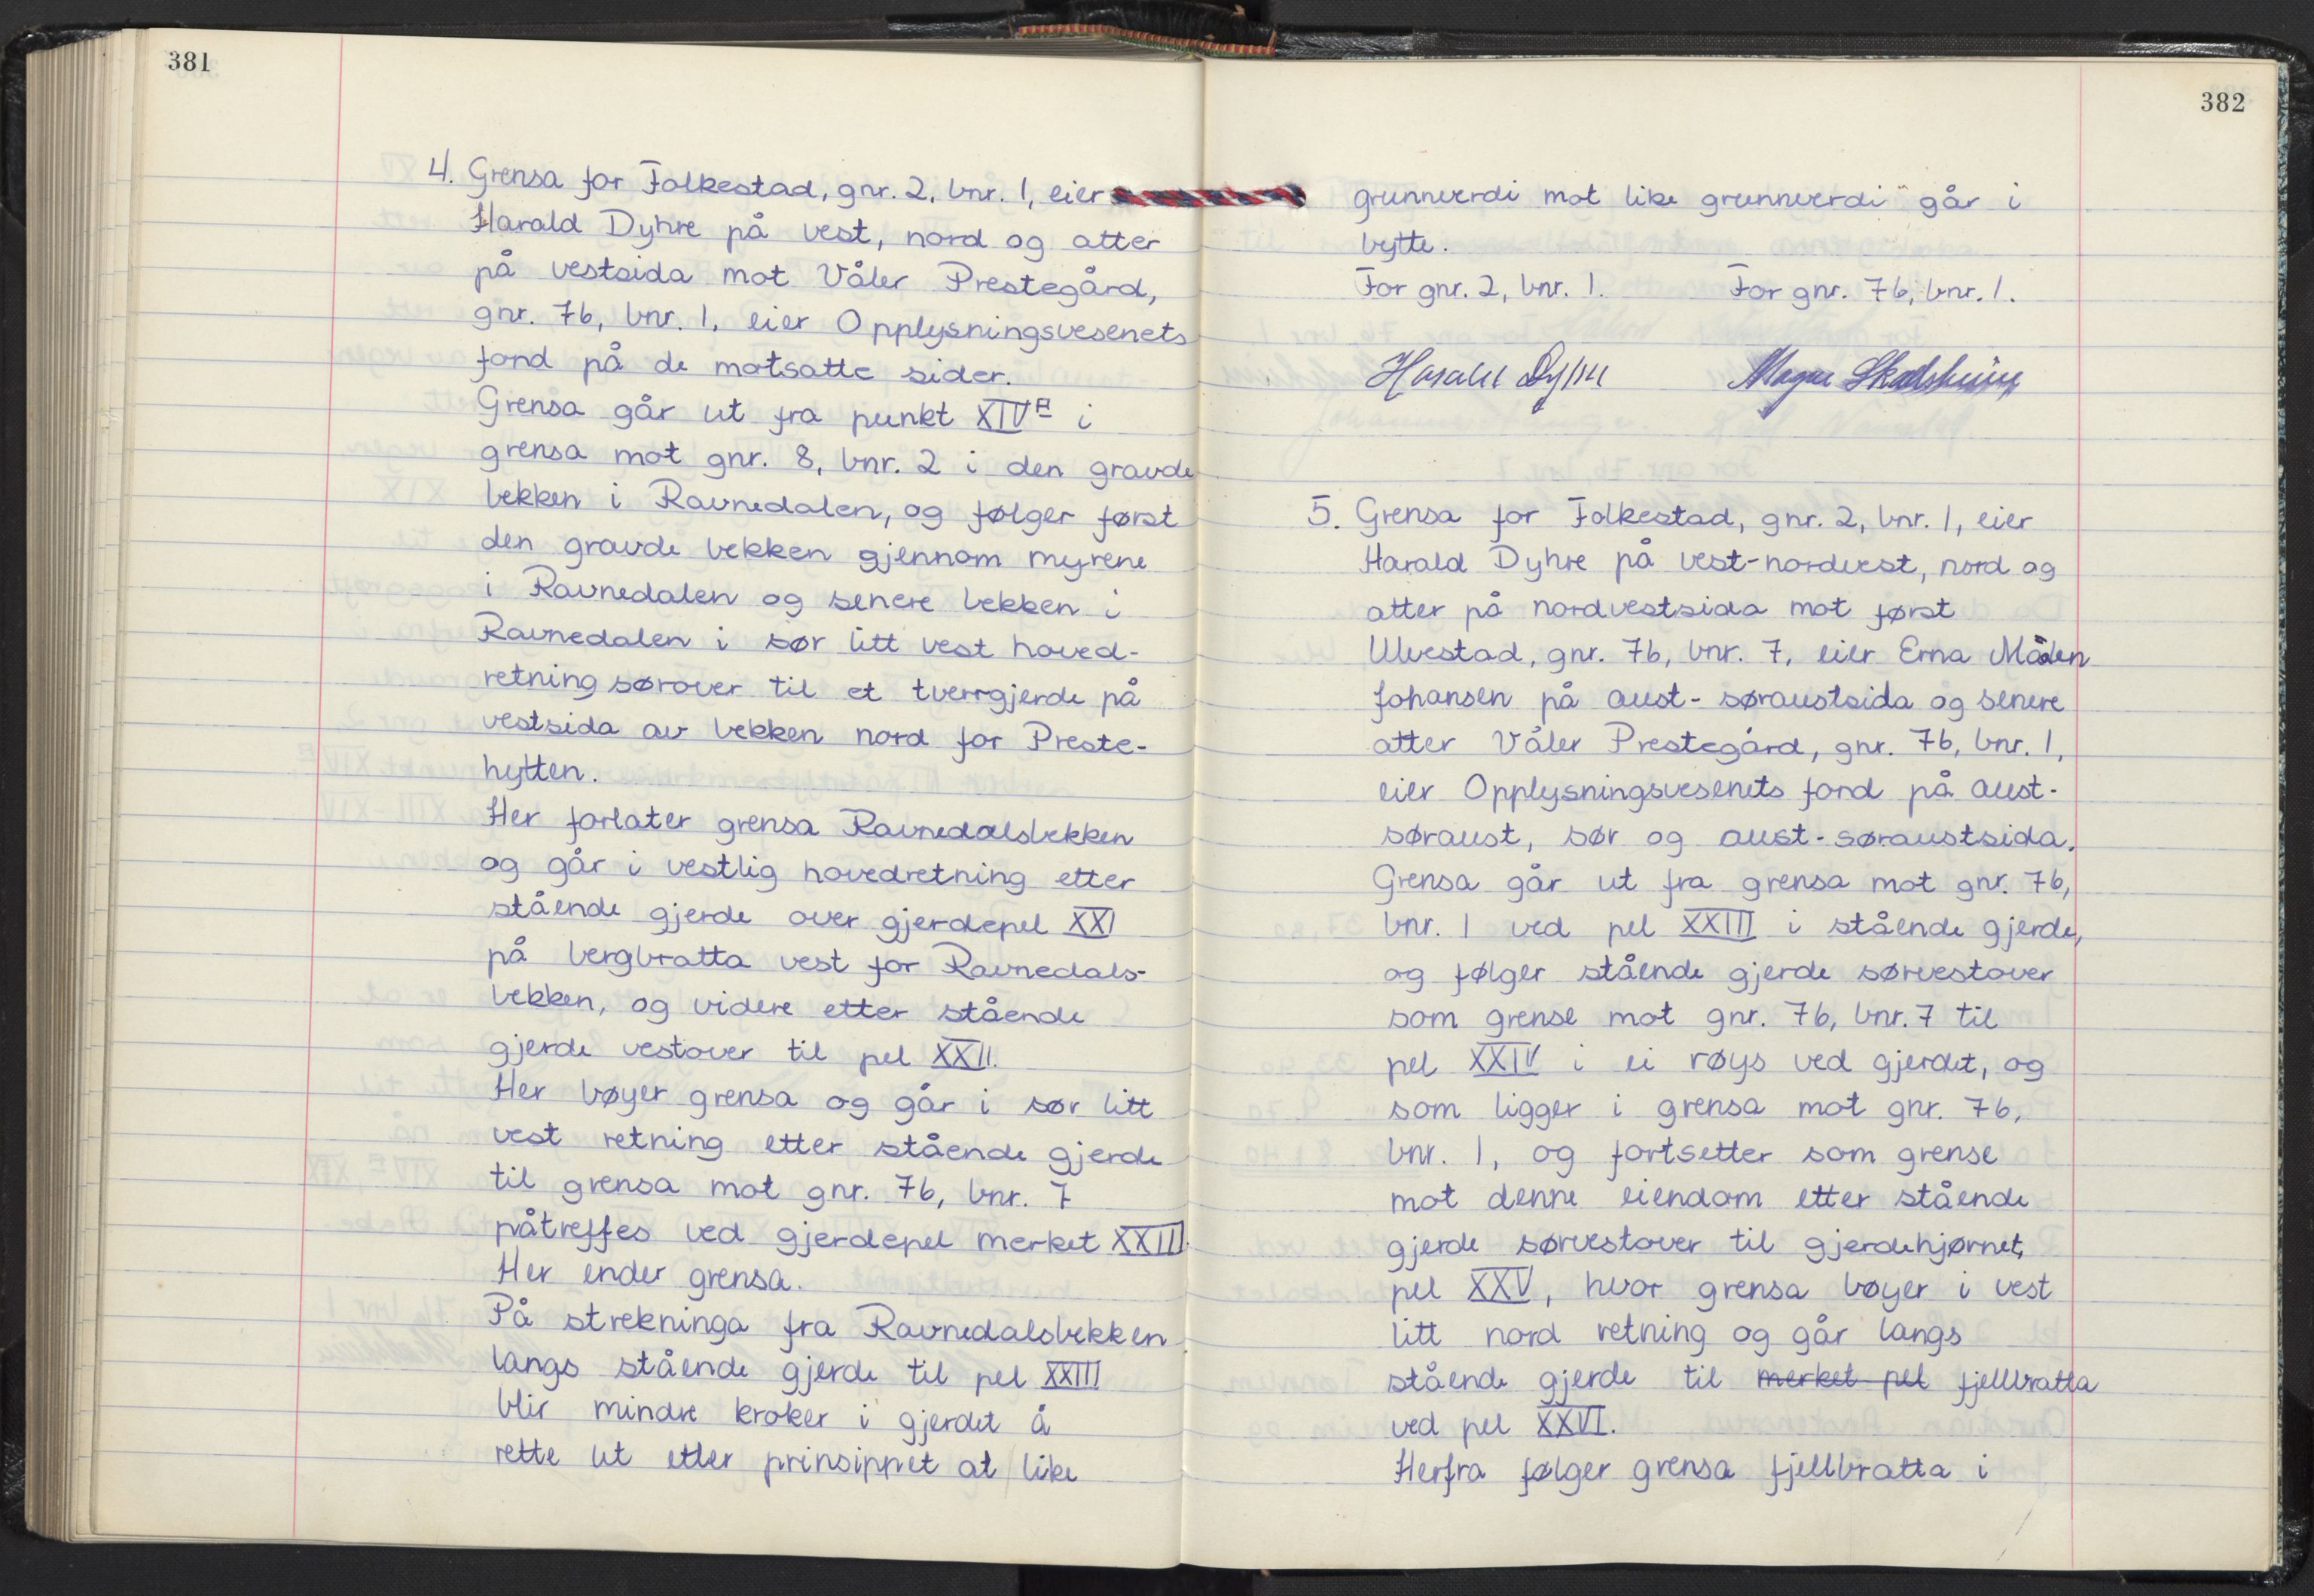 381
4. Grensa for Folkestad, gnr. 2, bnr. 1, eier
Harald Dyhre på vest, nord og atter
på vestsida mot Våler Prestegård,
gnr. 76, bnr. 1, eier Opplysningsvesenets
fond på de motsatte sider.
Grensa går ut fra punkt XIVᴱ i
grensa mot gnr. 8, bnr. 2 i den gravde
bekken i Ravnedalen, og følger først
den gravde bekken gjennom myrene
i Ravnedalen og senere bekken i
Ravnedalen i sør litt vest hoved-
retning sørover til et tverrgjerde på
vestsida av bekken nord for Preste-
hytten.
Her forlater grensa Ravnedalsbekken
og går i vestlig hovedretning etter
stående gjerde over gjerdepel XXI
på bergbratta vest for Ravnedals-
bekken, og videre etter stående
gjerde vestover til pel XXII.
Her bøyer grensa og går i sør litt
vest retning etter stående gjerde
til grensa mot gnr. 76, bnr. 7
påtreffes ved gjerdepel merket XXIII.
Her ender grensa.
På strekninga fra Ravnedalsbekken
langs stående gjerde til pel XXIII
blir mindre kroker i gjerdet å
rette ut etter prinsippet at like
382
grunnverdi mot like grunnverdi går i
bytte.
For gnr. 2, bnr. 1. For gnr. 76, bnr. 1.
Harald Dyhre Magne Skadsheim
5. Grensa for Folkestad, gnr. 2, bnr. 1, eier
Harald Dyhre på vest-nordvest, nord og
atter på nordvestsida mot først
Ulvestad, gnr. 76, bnr. 7, eier Erna Målen
Johansen på aust- søraustsida og senere
atter Våler Prestegård, gnr. 76, bnr. 1,
eier Opplysningsvesenets fond på aust-
søraust, sør og aust-søraustsida.
Grensa går ut fra grensa mot gnr. 76,
bnr. 1 ved pel XXIII i stående gjerde,
og følger stående gjerde sørvestover
som grense mot gnr. 76, bnr. 7 til
pel XXIV i ei røys ved gjerdet, og
som ligger i grensa mot gnr. 76,
bnr. 1, og fortsetter som grense
mot denne eiendom etter stående
gjerde sørvestover til gjerdehjørnet,
pel XXV, hvor grensa bøyer i vest
litt nord retning og går langs
stående gjerde til merket pel fjellbratta
ved pel XXVI.
Herfra følger grensa fjellbratta i